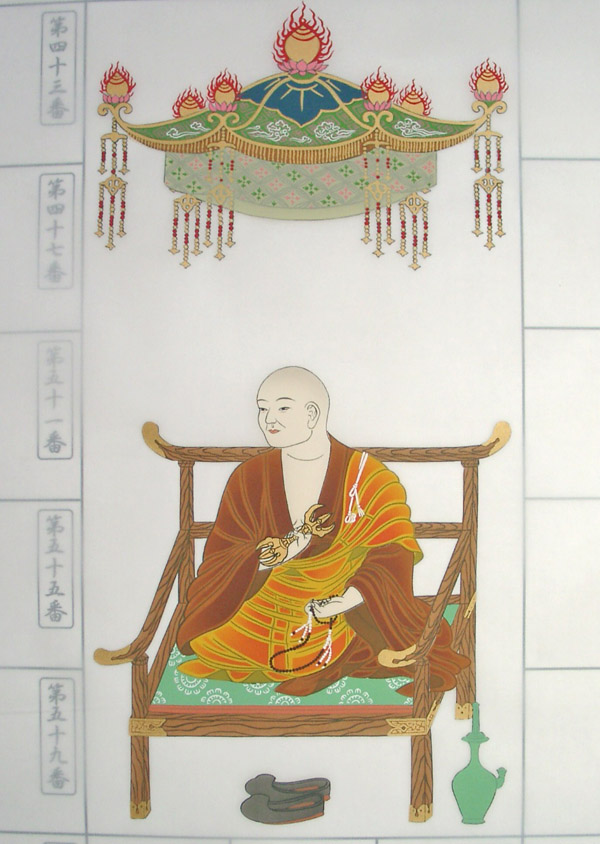 第四十三番
第四十七番
第五十一番
第五十五番
第五十九番